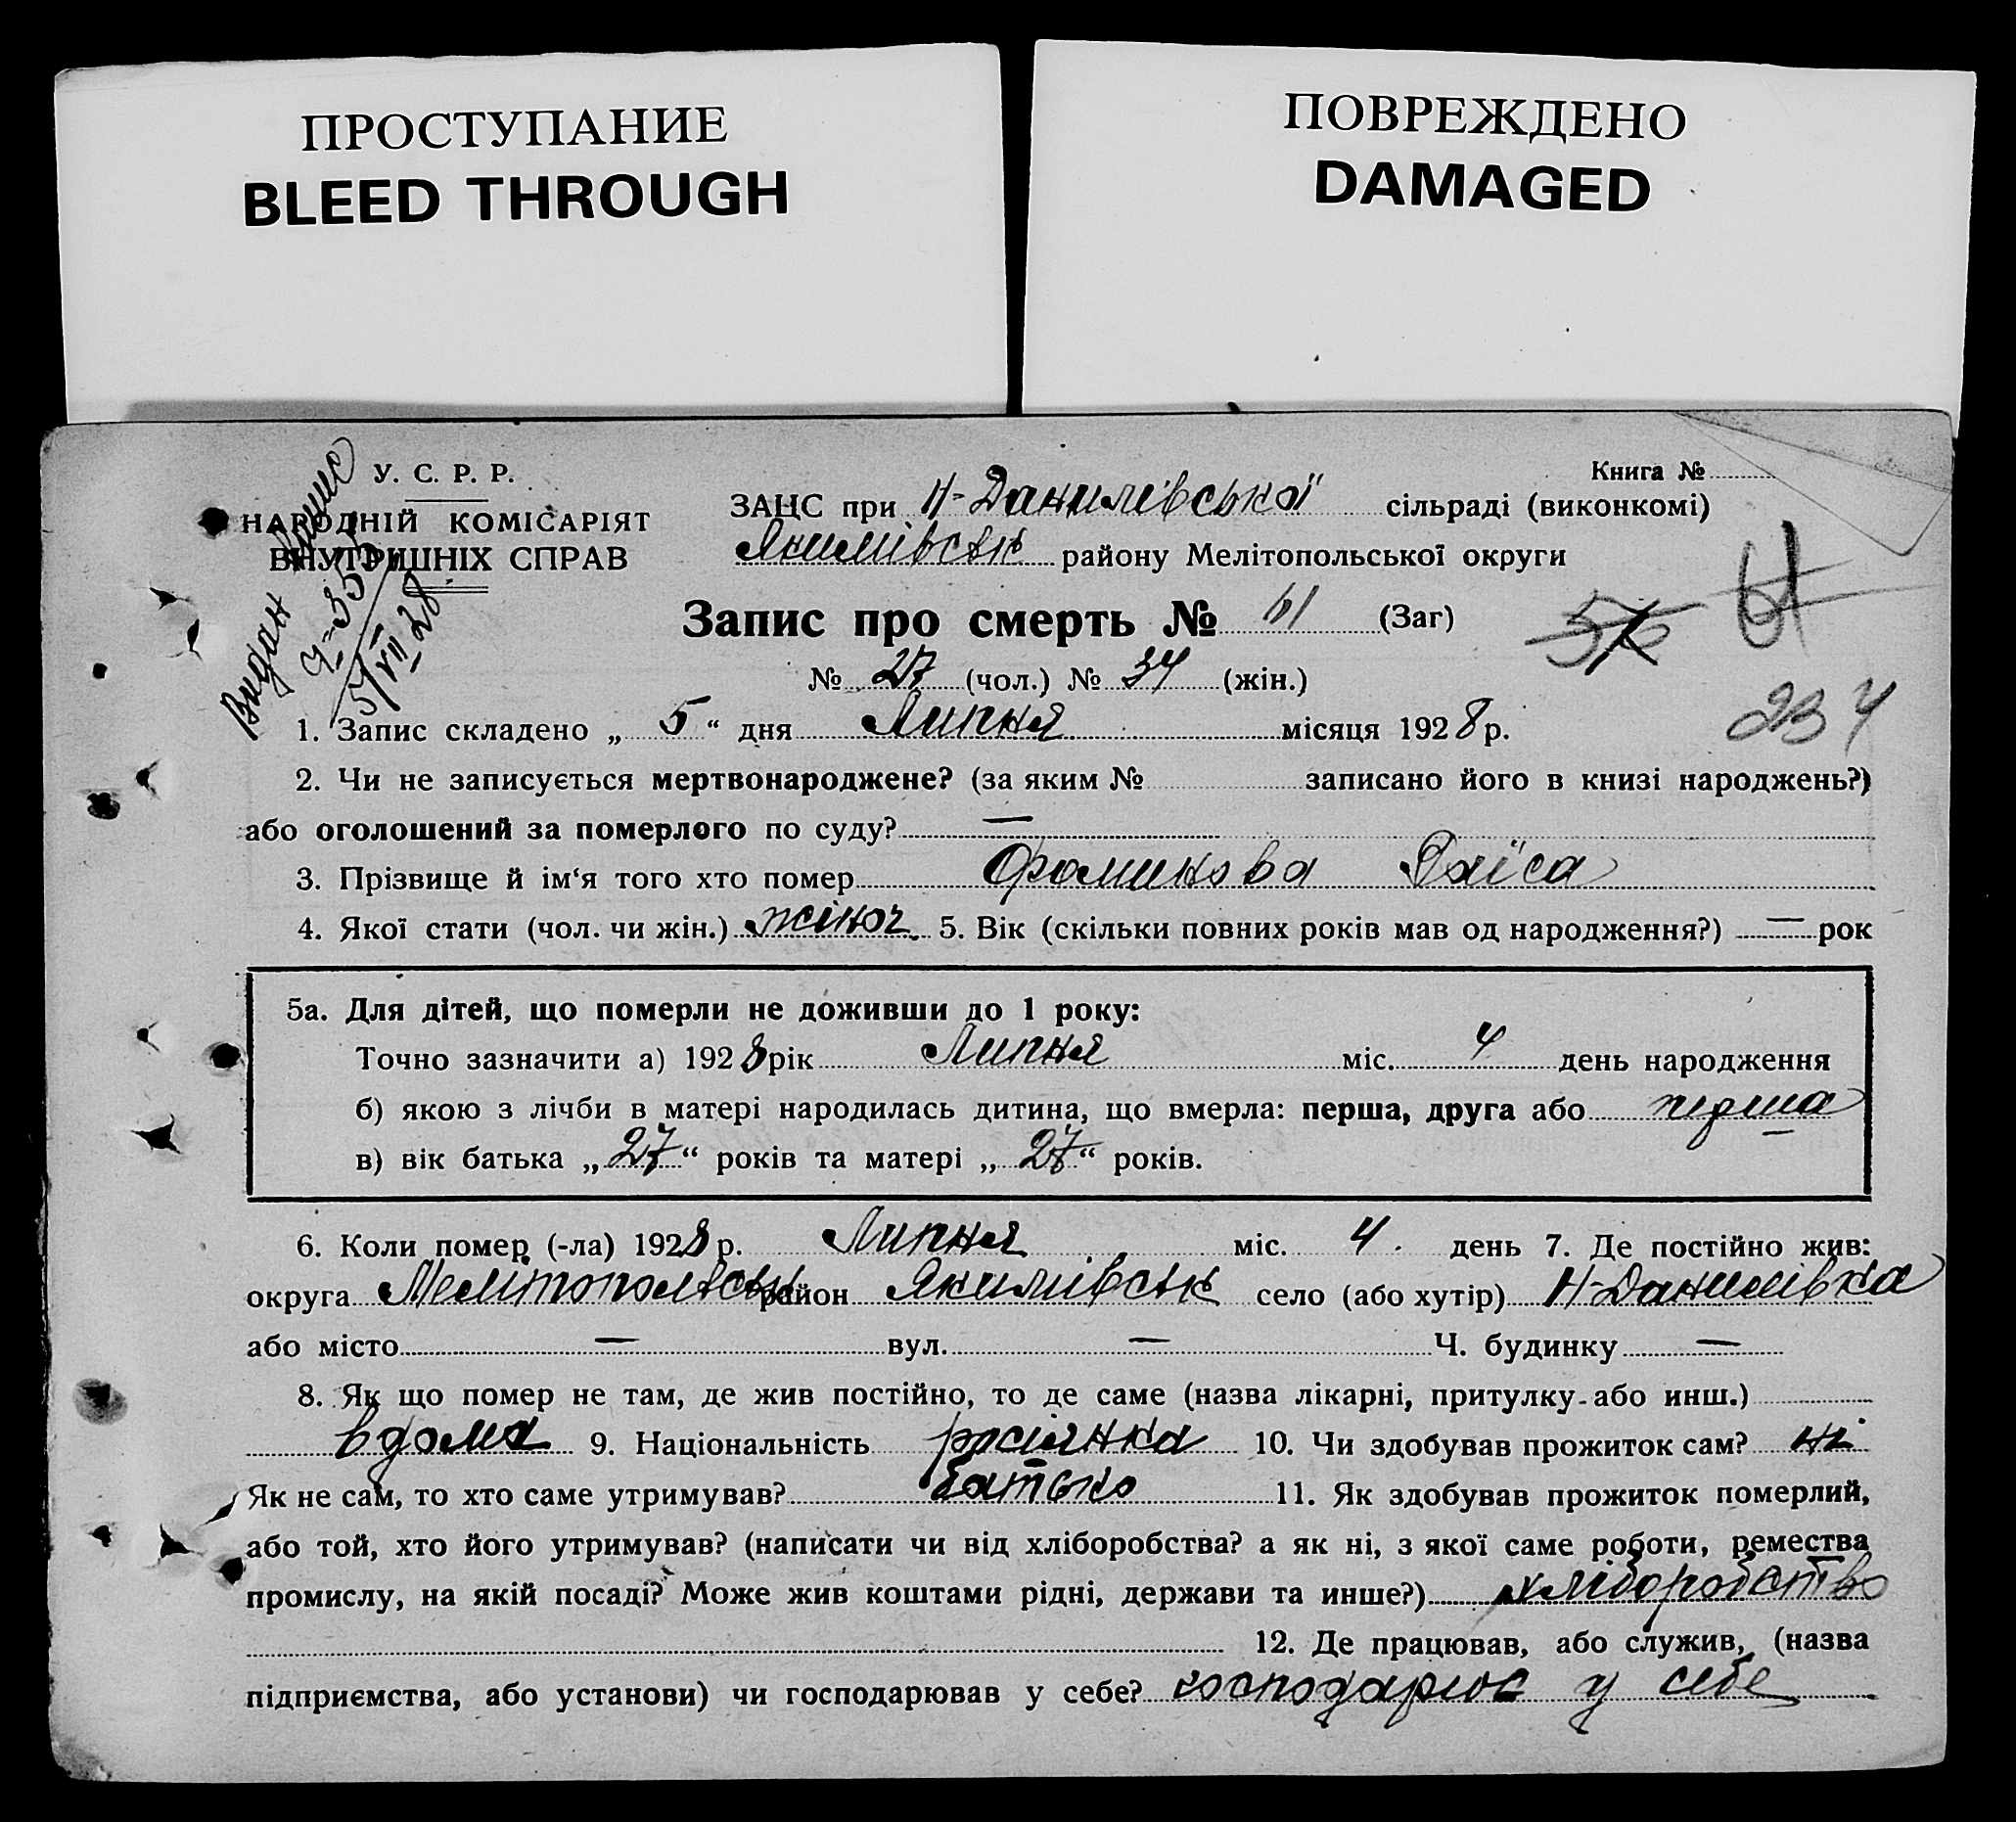 ПРОСТУПАНИЕ
BLEED THROUGH
ПОВРЕЖДЕНО
DAMAGED
У. С. Р. Р.
НАРОДНІЙ КОМІСАРІЯТ
ВНУТРІШНІХ СПРАВ
Видан
5/VII 28
Книга №
ЗАЦС при Н-Данилівської сільраді (виконкомі)
Якимівськ району Мелітопольської округи
Запис про смерть № 61 (Заг)
№ 27 (чол.) № 34 (жін.)
61
234
1. Запис складено „ 5 “ дня Липня місяця 1928 р.
2. Чи не записується мертвонароджене? (за яким № записано його в книзі народжень?)
або оголошений за померлого по суду? —
3. Прізвище й ім‘я того хто помер Фоминова Раїса
4. Якої стати (чол. чи жін.) жіноч. 5. Вік (скільки повних років мав од народження?) — рок
5а. Для дітей, що померли не доживши до 1 року:
Точно зазначити а) 1928 рік Липня міс. 4 день народження
б) якою з лічби в матері народилась дитина, що вмерла: перша, друга або перша
в) вік батька „ 27 “ років та матері „ 27 “ років.
6. Коли помер (-ла) 1928 р. Липня міс. 4. день 7. Де постійно жив:
округа Мелітопольськ район Якимівськ село (або хутір) Н-Данилівка
або місто — вул. — Ч. будинку —
8. Як що помер не там, де жив постійно, то де саме (назва лікарні, притулку або инш.)
вдома 9. Національність росіянка 10. Чи здобував прожиток сам? ні
Як не сам, то хто саме утримував? батько 11. Як здобував прожиток померлий,
або той, хто його утримував? (написати чи від хліборобства? а як ні, з якої саме роботи, ремества
промислу, на якій посаді? Може жив коштами рідні, держави та инше?) хліборобство
12. Де працював, або служив, (назва
підприємства, або установи) чи господарював у себе? господарює у себе